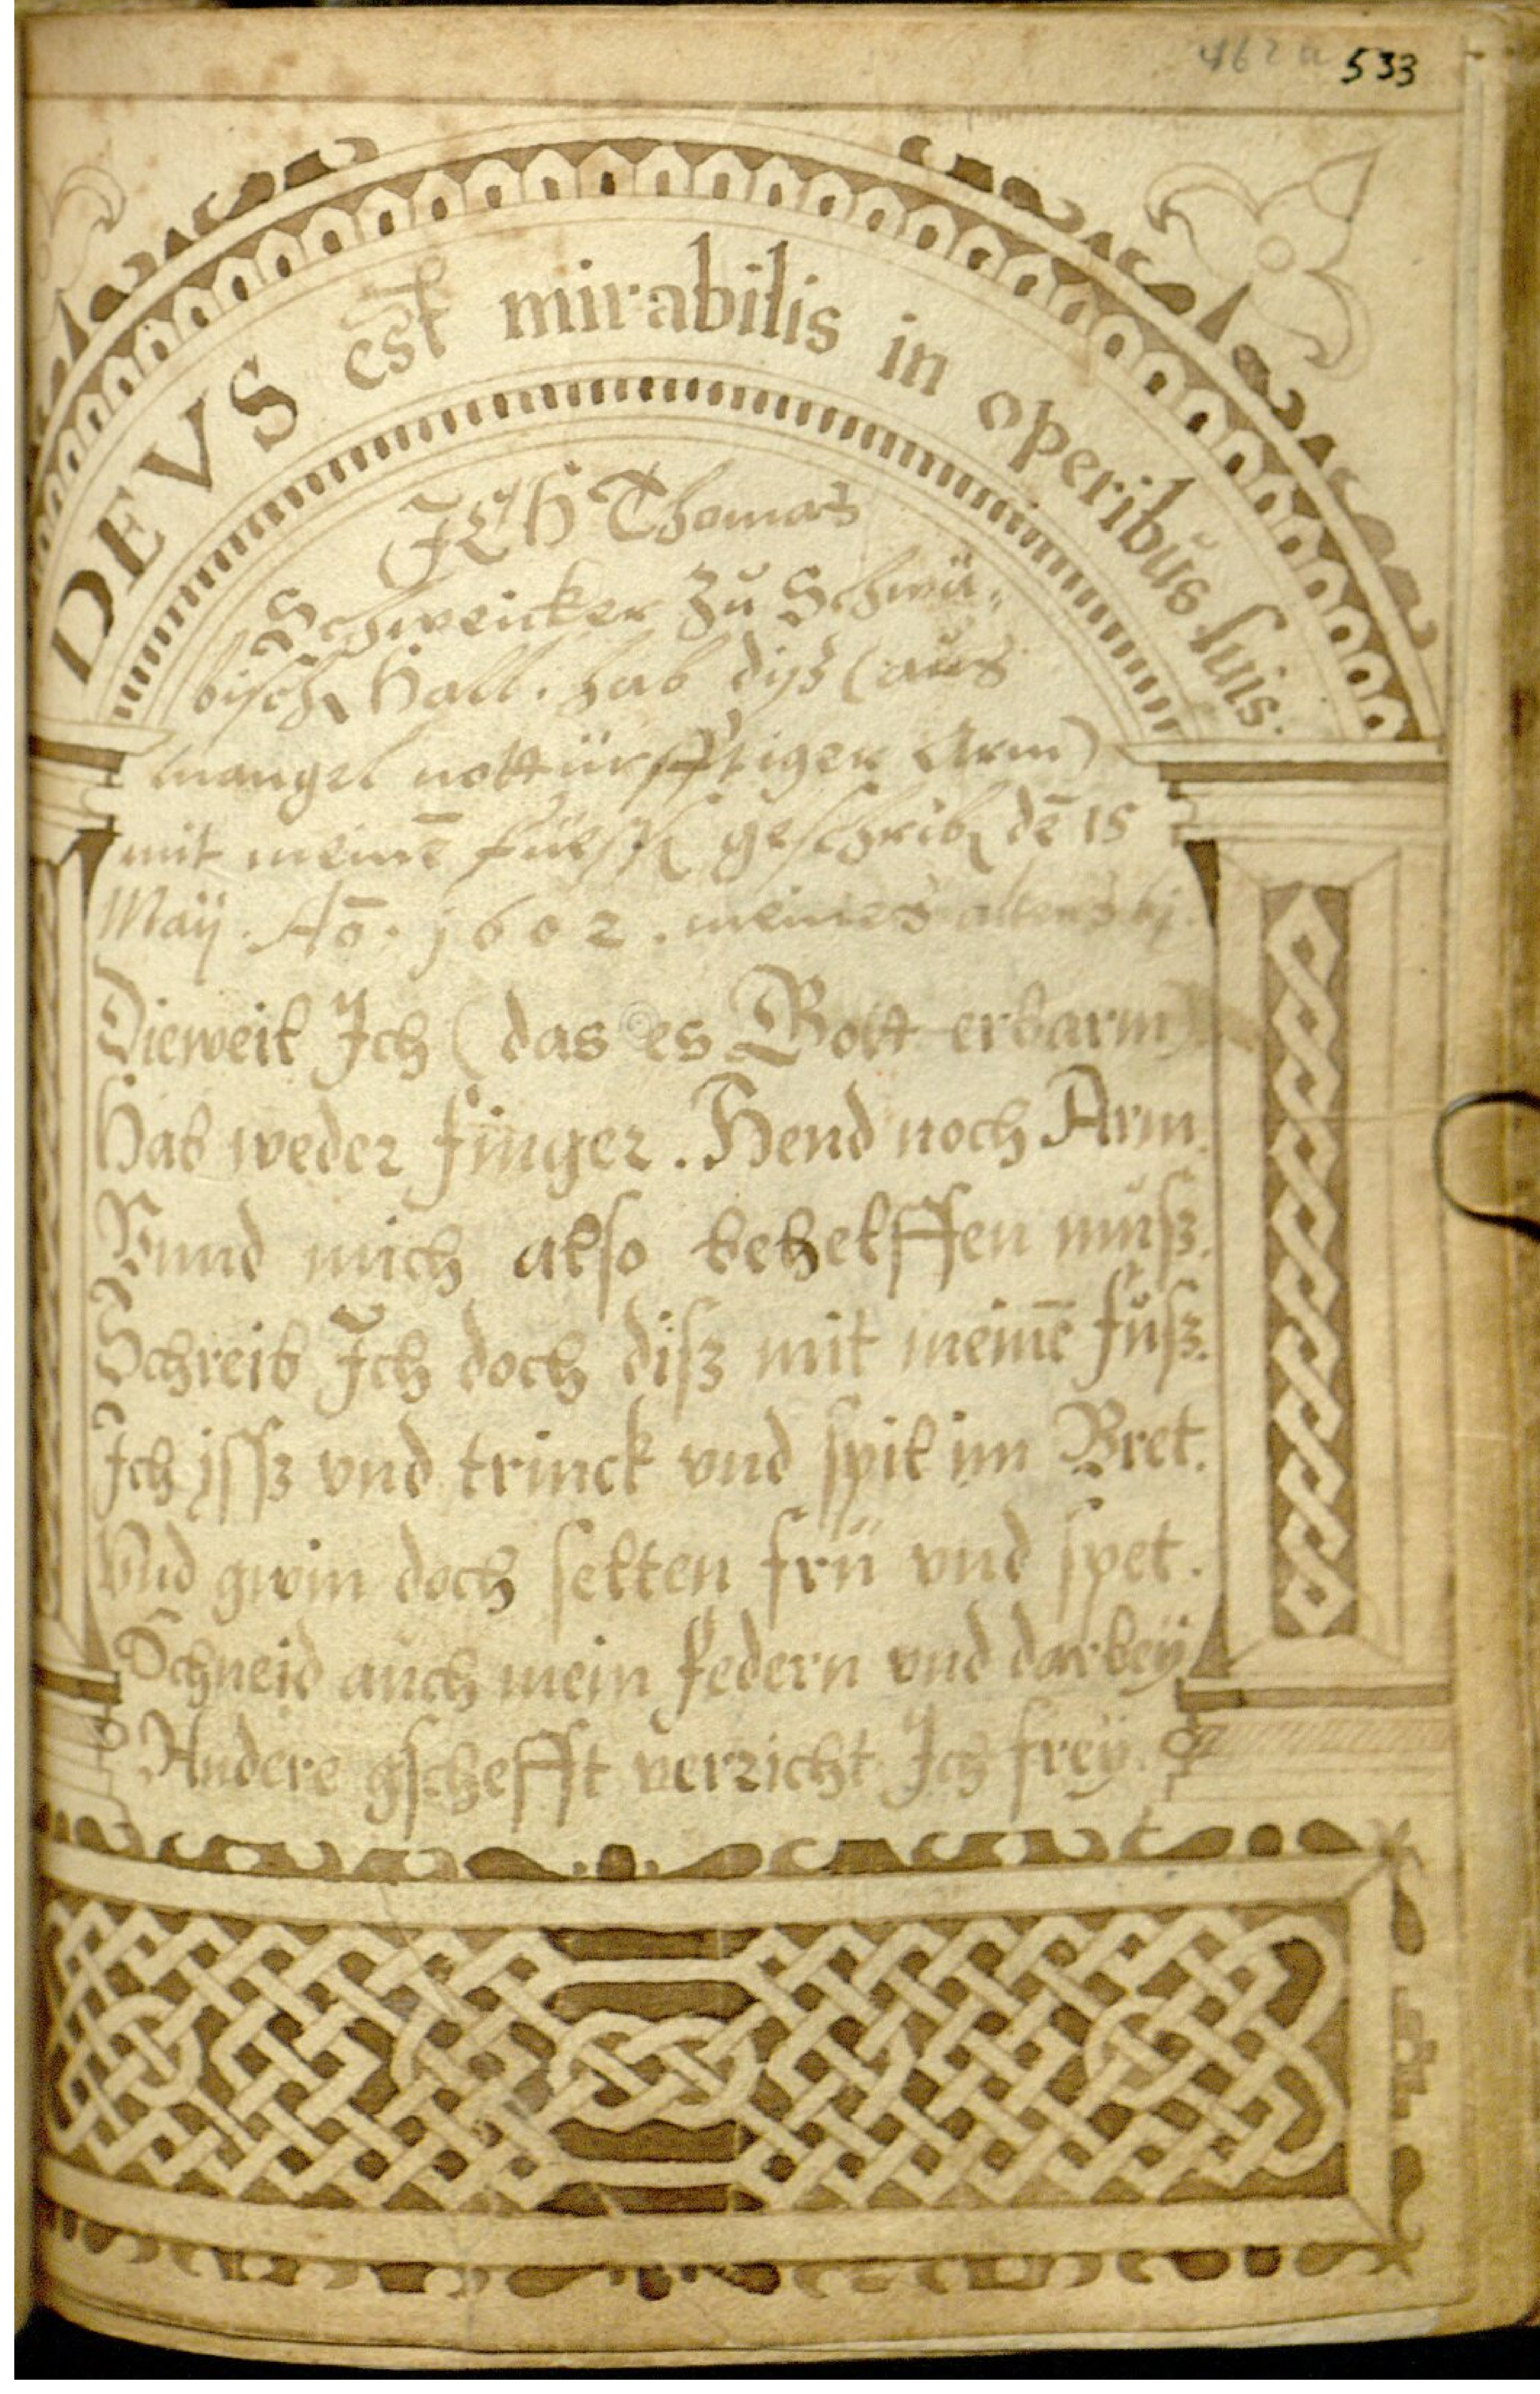 533
DEVS est mirabilis in operibus suis.
ICH Thomas
Schweicker Zu Schwä-
bisch Hall. hab diß (aus
mangel nottürfftiger Arm)
mit meinē füessen geschriben dē 15
Maÿ. Aō. 1602. meines alters
Dieweil Ich (das es Gott erbarm)
Hab weder finger. Hend noch Arm.
Vnnd mich also behelffen muß.
Schreib Ich doch diß mit meinē fuß.
Ich jssz vnd trinck vnd spil im Bret.
Vnd gwin doch selten frü vnd spet.
Schneid auch mein federn vnd darbeÿ
Andere gschefft verricht Ich freÿ.